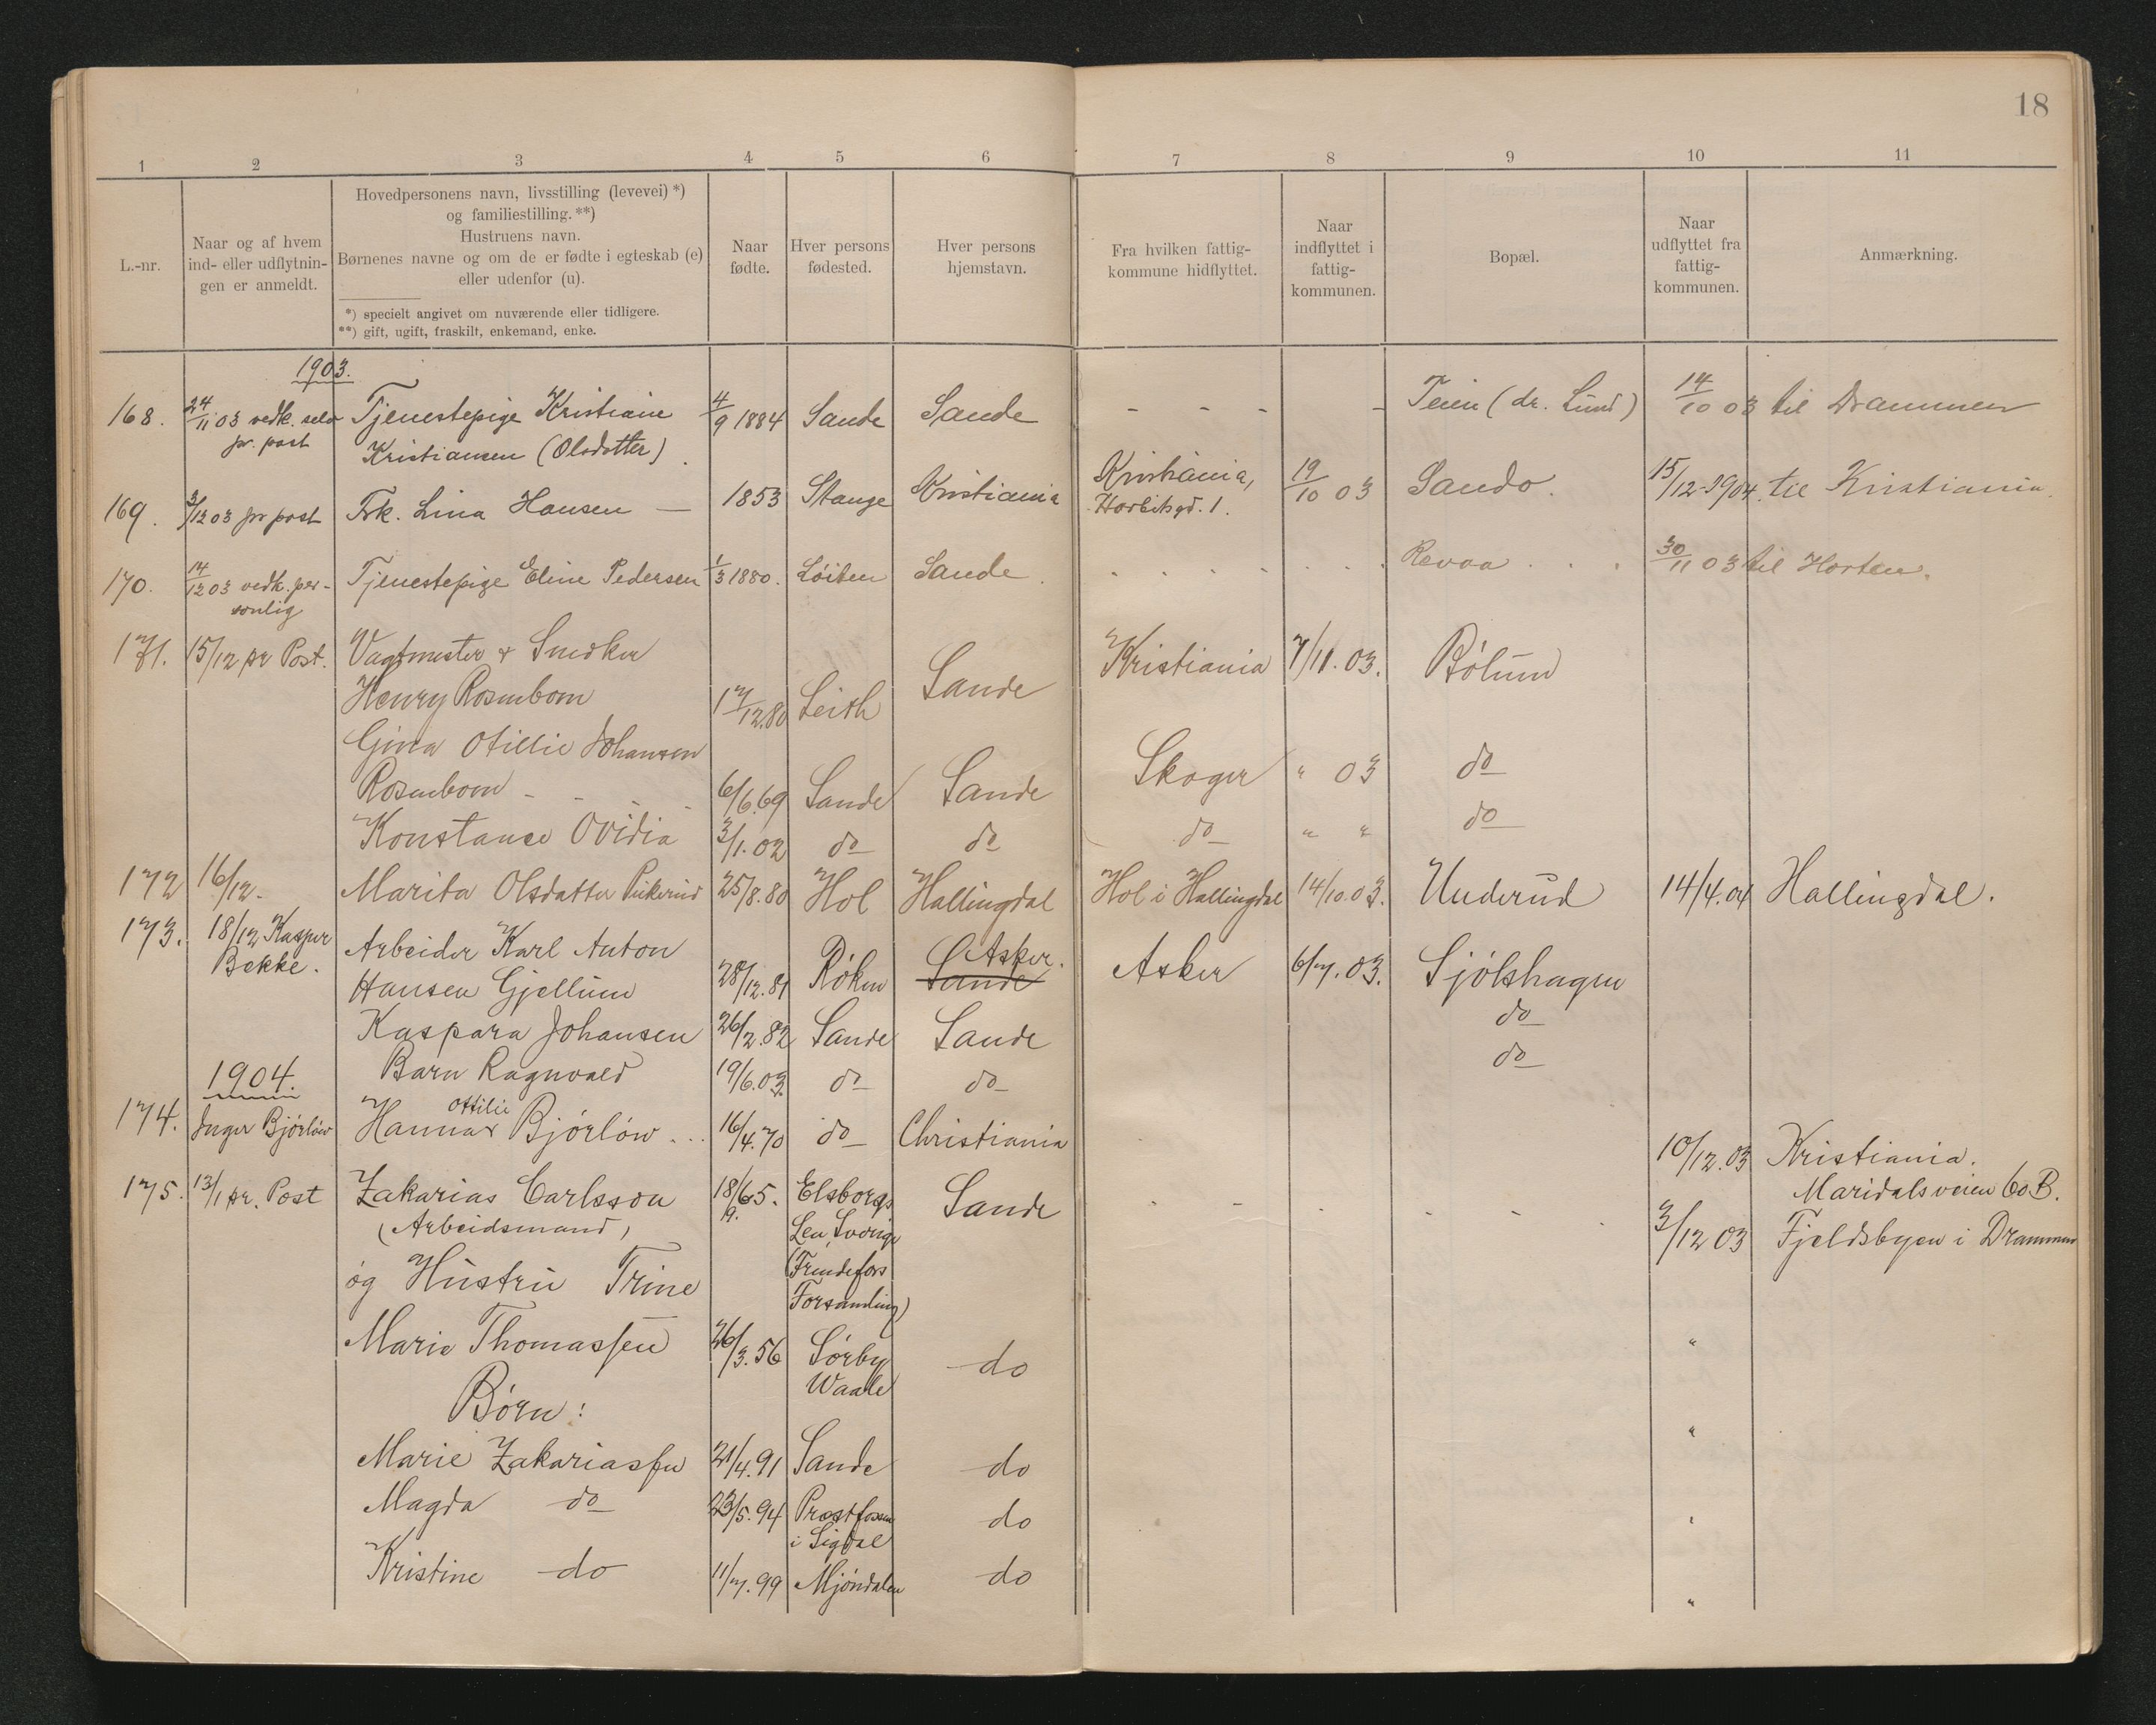 18
1 2 3 4 5 6 7 8 9 10 11
L.-nr.
Naar og af hvem
ind- eller udflytnin-
gen er anmeldt.
Hovedpersonens navn, livsstilling (levevei) *)
og familiestilling. **)
Hustruens navn.
Børnenes navne og om de er fødte i egteskab (e)
eller udenfor (u).
*) specielt angivet om nuværende eller tidligere.
**) gift, ugift, fraskilt, enkemand, enke.
Naar
fødte.
Hver persons
fødested.
Hver persons
hjemstavn.
Fra hvilken fattig-
kommune hidflyttet.
Naar
indflyttet i
fattig-
kommunen.
Bopæl.
Naar
udflyttet fra
fattig-
kommunen.
Anmærkning.
1903.
168. 24/11 03 vedk. selv Tjenestepige Kristiane 4/9 1884 Sande Sande - - - - Teien (dr. Lund) 14/10 03 til Drammen
pr. post Kristiansen (Olsdatter)
169. 3/12 03 pr post Frk. Lina Hansen — 1853 Stange Kristiania Kristiania, 19/10 03 Sando. 15/12-1904. til Kristiania.
170. 14/12 03 vedk. per- Tjenestepige Eline Pedersen 1/3 1880. Löiten Sande . . . . . . . Revaa . . . 30/11 03 til Horten.
sonlig
171. 15/12 pr Post. Vagtmester & Snedker Kristiania 7/11. 03. Bölum
Henry Rosenborn 17/12.80 Leith Sande
Gina Otillie Johansen
Rosenborn - - - 6/6.69 Sande Sande Skoger " 03 do
Konstanse Ovidia 3/1. 02 do do do " " do
172 16/12. Marita Olsdatter 25/8.80 Hol Hallingdal Hol i Hallingdal 14/10.03. Underud 14/4.04 Hallingdal.
173. 18/12 Kasper Arbeider Karl Anton Asker.
Bekke. Hansen Gjellum 28/12.81 Röken Sande Asker 6/7. 03. Sjölshagen
Kaspara Johansen 26/2.82 Sande Sande do
Barn Ragnvald 19/6.03. do do do
1904.
Ottilie
174. Inger Björlöw Hanna x Björlöw ... 16/4.70 do Christiania 10/12.03 Kristiania.
Maridalsveien 60 B.
175. 13/1 pr. Post Zakarias Carlsson 18/65. Elsborgs Sande - - - - - 3/12 03 Fjeldsbyen i Drammen
(Arbeidsmand) 9. Len, Sverige
og Hustru Trine (Frendefors
Forsamling)
Marie Thomassen 26/3.56 Sörby do "
Waale
Börn:
Marie Zakariassen 21/4.91 Sande do "
Magda do 23/5.94 Prestfossen do "
i Sigdal
Kristine do 11/7.99 Mjöndalen do "